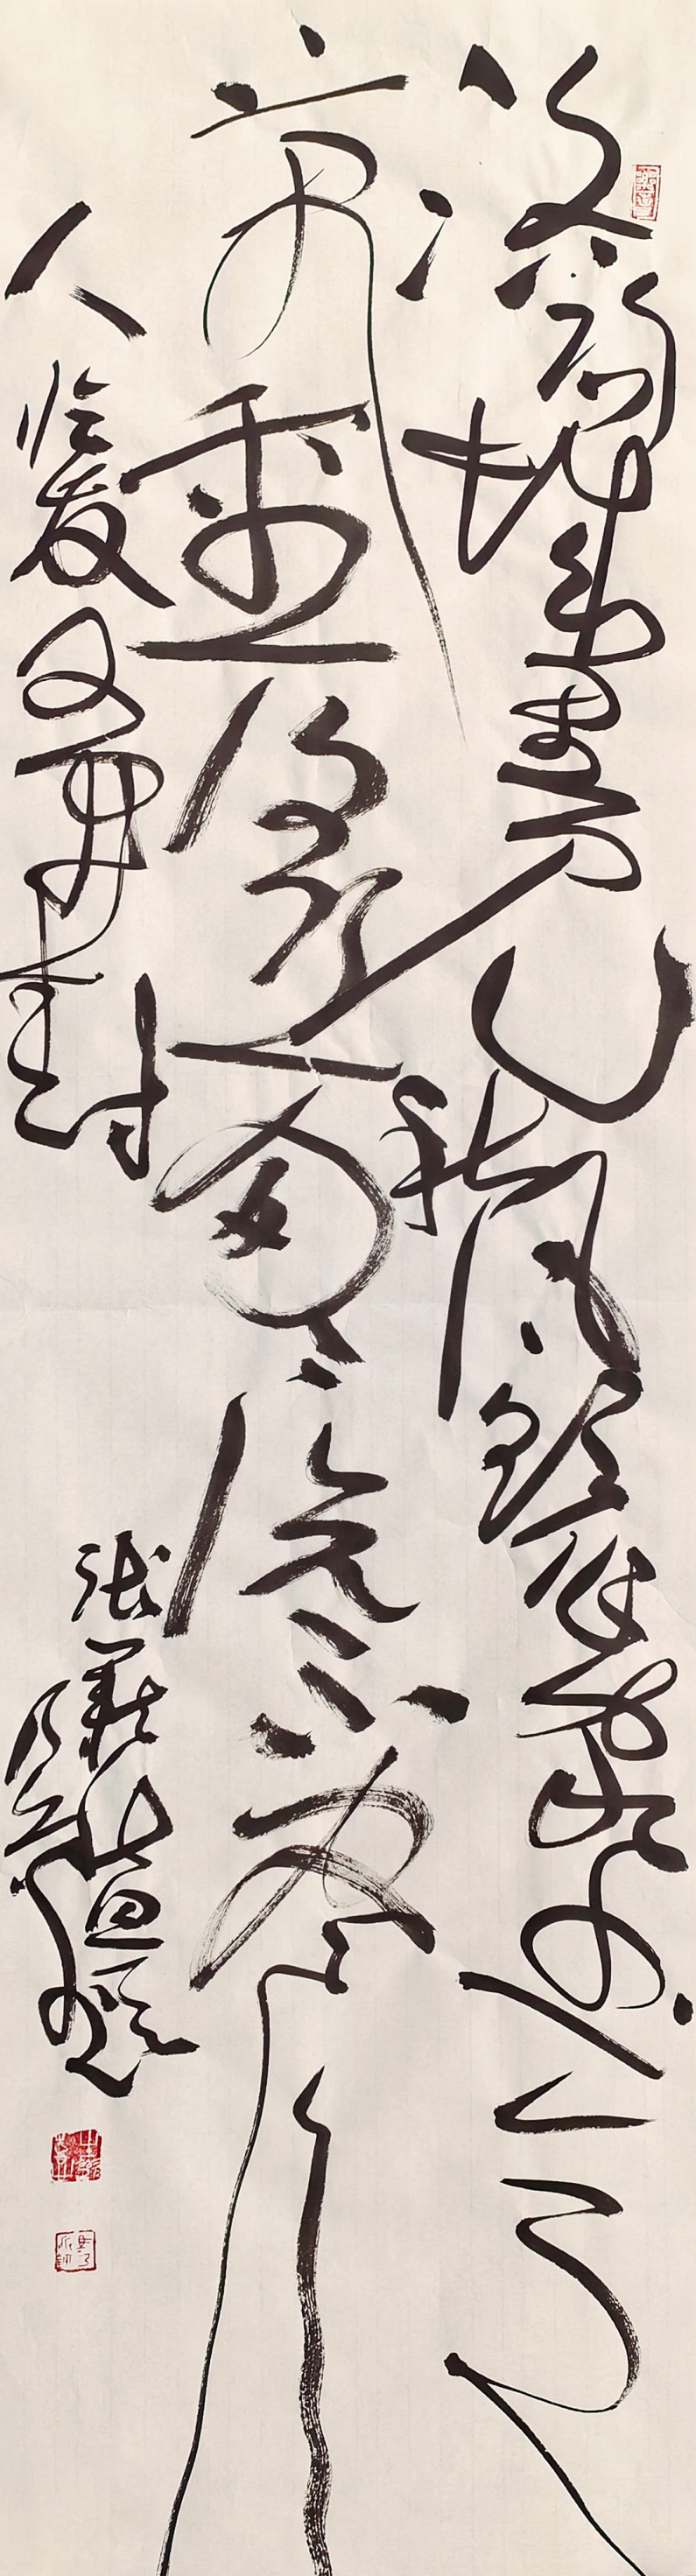 洛阳城里见秋风欲作家书意万
重复恐匆匆说不尽行
人临发又开封
张籍秋思